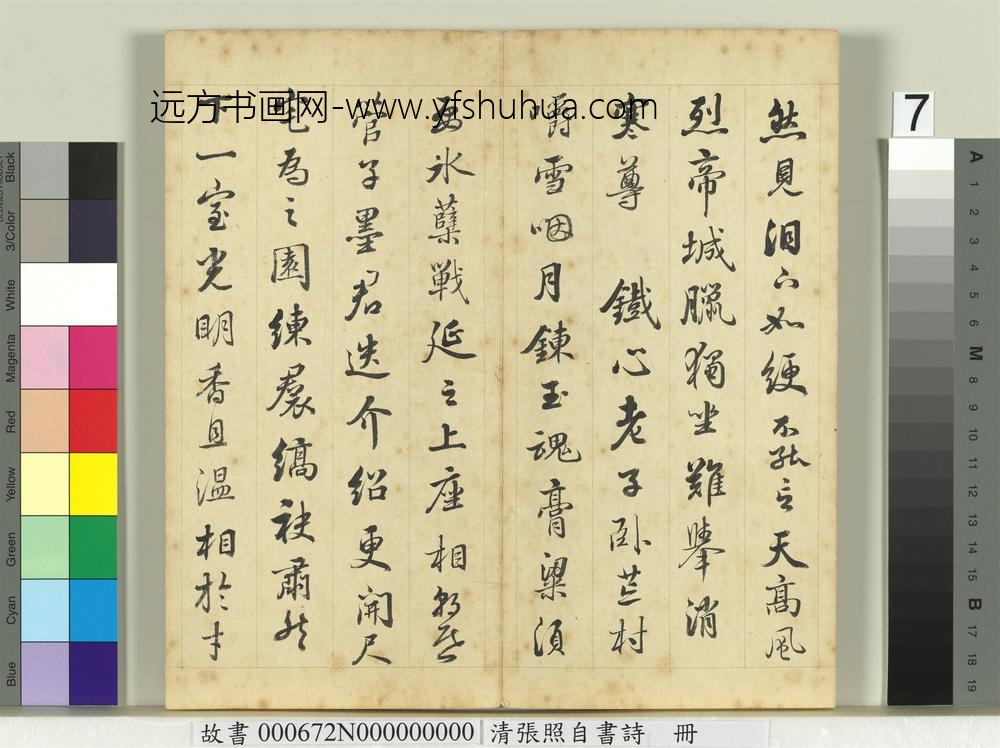 远方书画网-www.yfshuhua.com
然見泪下如綆不能言天高風
烈帝城臘獨坐難舉消
寒尊 鐵心老子臥芒村
嚼雪咽月鍊玉魂膏粱須
要氷蘗戰延之上座相
管子墨君迭介紹更開尺
宅為之園練帬縞袂肅然
下一室光明香且溫相於
7
Black
3/Color
White
Magenta
Red
Yellow
Green
Cyan
Blue
A
1
2
3
4
5
6
M
8
9
10
11
12
13
14
15
B
17
18
19
故書 000672N000000000 清張照自書詩 冊